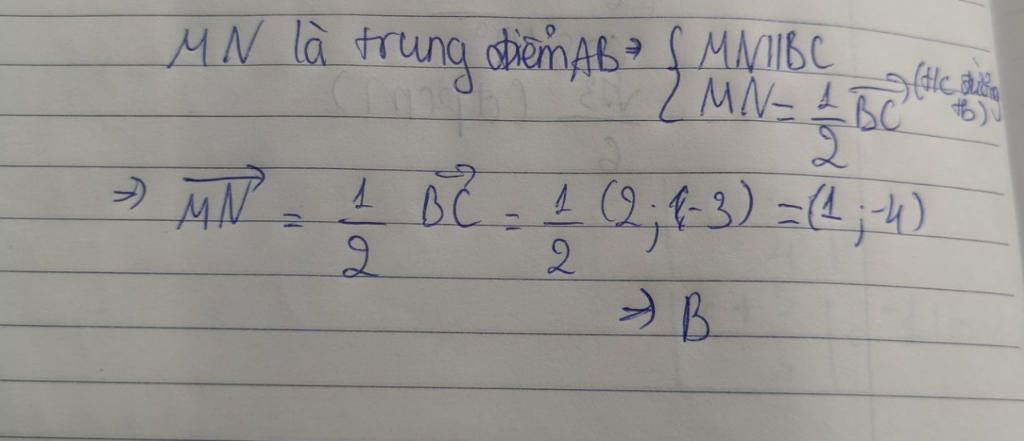 MN là trung điểm AB → { MN//BC
MN = 1/2 BC→ (t/c đường tb)
⇒ MN→ = 1/2 BC→ = 1/2 (2; -3) = (1; -4)
⇒ B